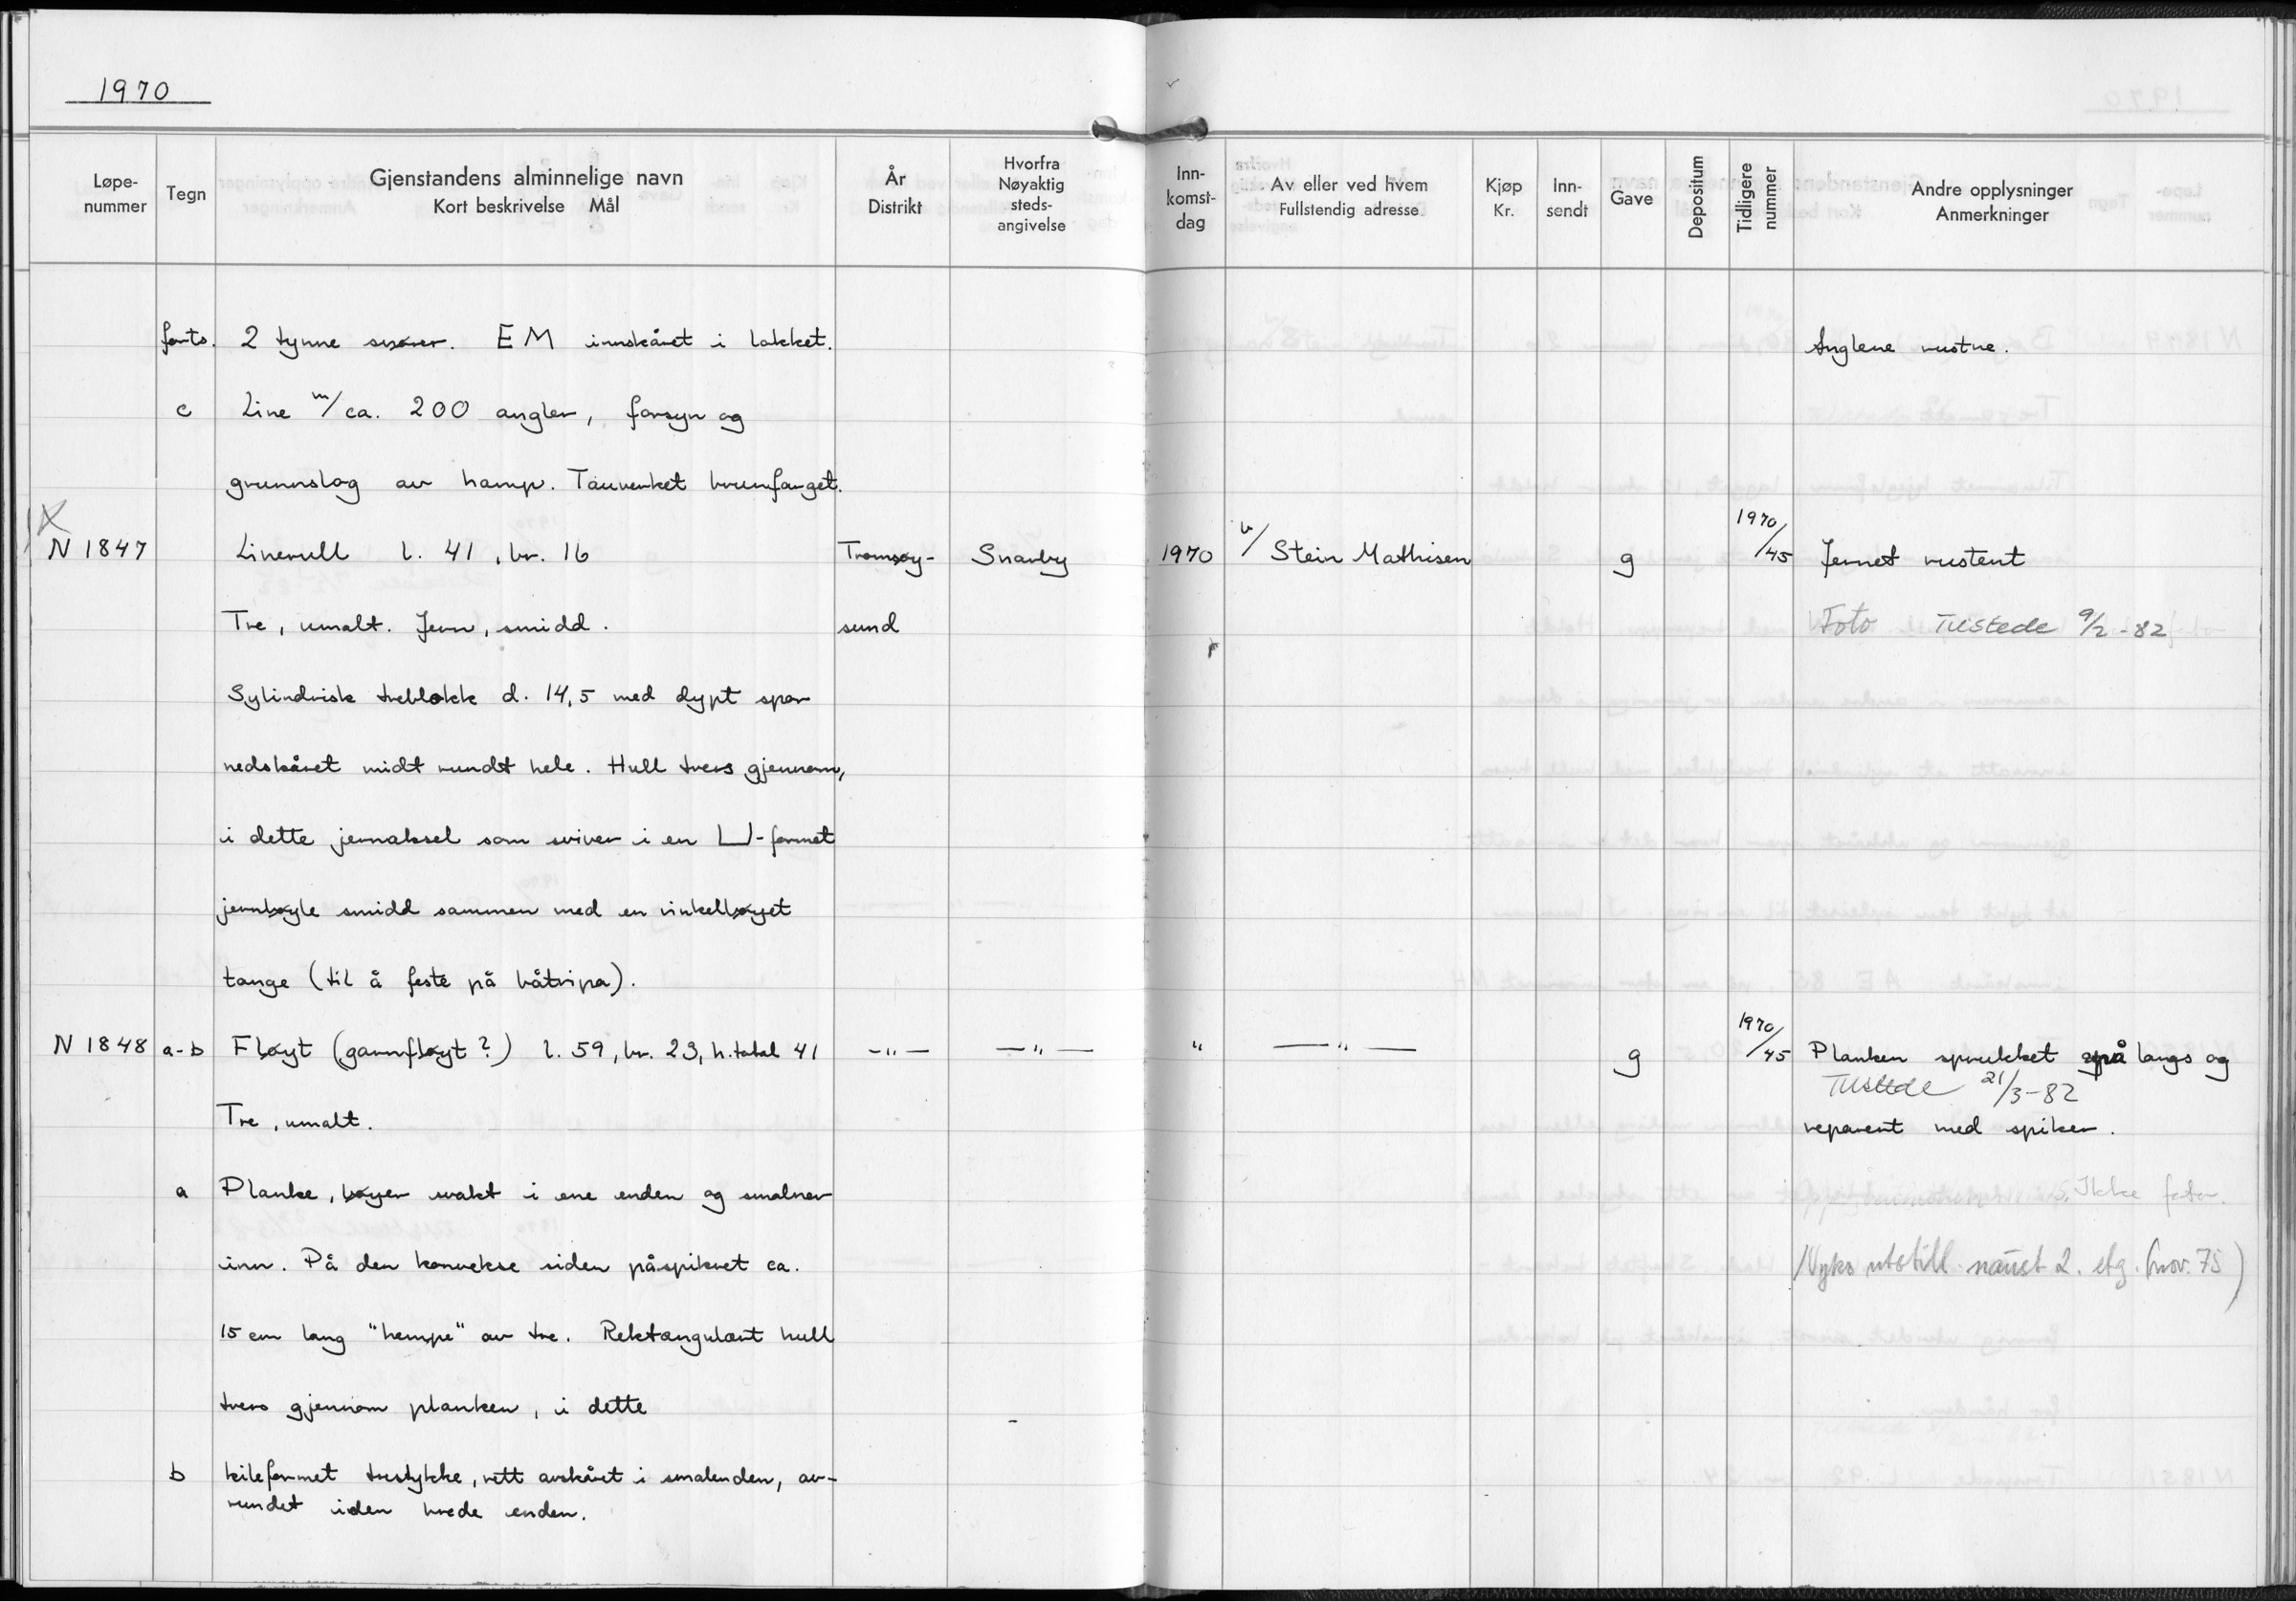 1970
Løpe-
nummer
Tegn
Gjenstandens alminnelige navn
Kort beskrivelse Mål
År
Distrikt
Hvorfra
Nøyaktig
steds-
angivelse
Inn-
komst-
dag
Av eller ved hvem
Fullstendig adresse
Kjøp
Kr.
Inn-
sendt
Gave
Depositum
Tidligere
nummer
Andre opplysninger
Anmerkninger
forts. 2 tynne snører. EM innskåret i lokket. Anglene rustne.
c Line m/ca. 200 angler, forsyn og
grunnslag av hamp. Tauverket brunfarget.
N 1847 Linerull l. 41, br. 16 Tromsøy- Snarby 1970 v/ Stein Mathisen g 1970/45 Jernet rustent
Tre, umalt. Jern, smidd. sund Foto Tilstede 9/2-82
Sylindrisk treblokk d. 14,5 med dypt spor
nedskåret midt rundt hele. Hull tvers gjennom,
i dette jernaksel som sviver i en ⊔-formet
jernbøyle smidd sammen med en vinkelbøyet
tange (til å feste på båtripa).
N 1848 a-b Fløyt (garnfløyt?) l. 59, br. 23, h. total 41 -"- -"- " -"- g 1970/45 Planken sprukket på langs og
Tilstede 21/3-82
Tre, umalt. reparert med spiker.
a Planke, bøyer svakt i ene enden og smalner Ikke foto.
inn. På den konvekse siden påspikret ca. Nyks utstill. naust 2. etg. (nov. 75)
15 cm lang "hempe" av tre. Rektangulært hull
tvers gjennom planken, i dette
b kileformet trestykke, rett avskåret i smalenden, av-
rundet i den brede enden.